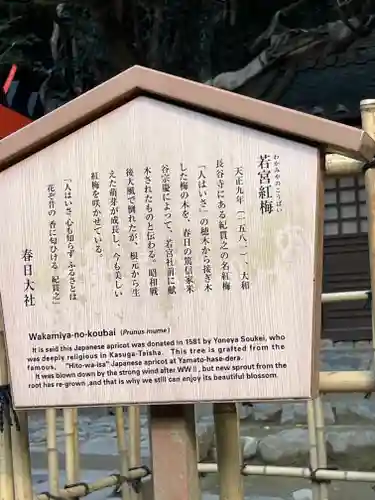 若宮紅梅
わかみやのこうばい
天正九年(一五八一)、大和
長谷寺にある紀貫之の名紅梅
「人はいさ」の穂木から接ぎ木
した梅の木を、春日の篤信家米
谷宗慶によって、若宮社前に献
木されたものと伝わる。昭和戦
後大風で倒れたが、根元から生
えた萌芽が成長し、今も美しい
紅梅を咲かせている。
「人はいさ 心も知らず ふるさとは
花ぞ昔の 香に匂ひける 紀貫之」
春日大社
Wakamiya-no-koubai (Prunus mume)
It is said this Japanese apricot was donated in 1581 by Yoneya Soukei, who
was deeply religious in Kasuga-Taisha. This tree is grafted from the
famous "Hito-wa-isa" Japanese apricot at Yamato-hase-dera.
It was blown down by the strong wind after WWⅡ, but new sprout from the
root has re-grown ,and that is why we still can enjoy its beautiful blossom.